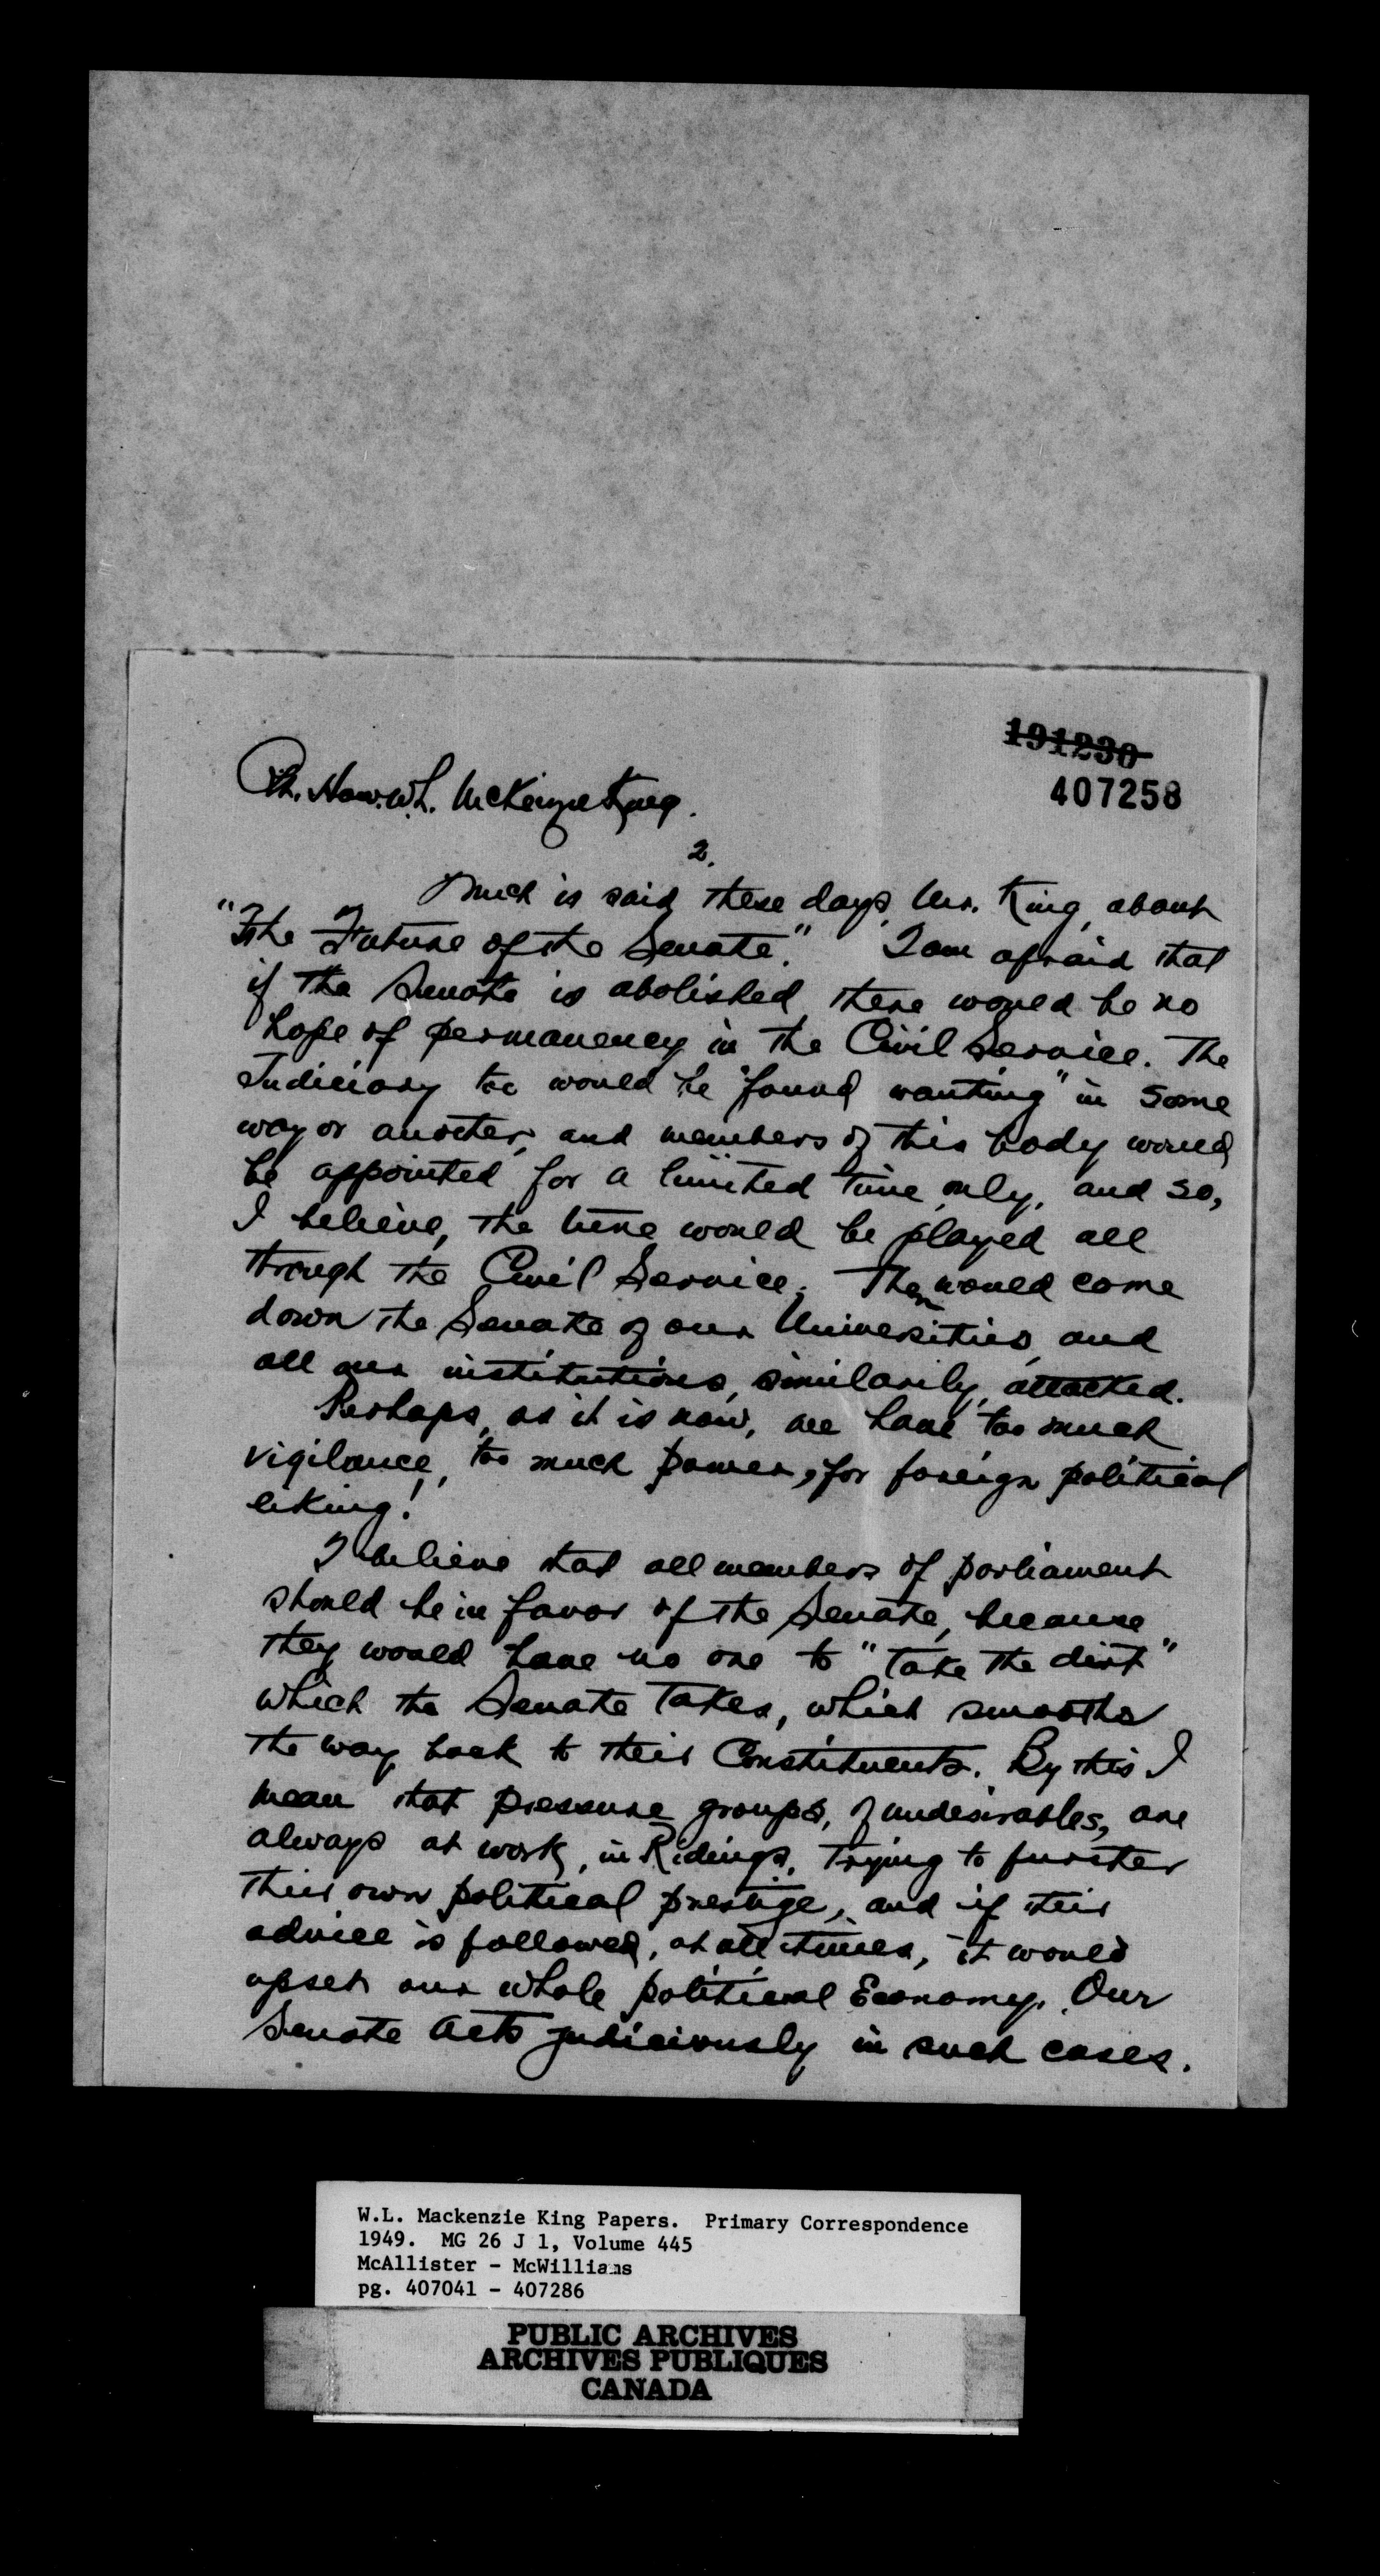 191230
407258
Rt. Hon. W.L. McKenzie King.
2.
Much is said, these days, Mr. King, about
"The Future of the Senate." I am afraid that
if the Senate is abolished, there would be no
hope of permanency in the Civil Service. The
Judiciary too would be "found wanting" in some
way or another, and members of this body would
be appointed for a limited time, only, and so,
I believe, the tune would be played all
through the Civil Service. Then would come
down the Senate of our Universities, and
all our institutions, similarily, attacked.
Perhaps, as it is now, we have too much
vigilance, too much power, for foreign political
liking!
I believe that all members of parliament
should be in favor of the Senate, because
they would have no one to "take the dirt"
which the Senate takes, which smooths
the way back to their Constituents. By this I
mean that pressure groups, of undesirables, are
always at work, in Ridings, trying to further
their own political prestige, and if their
advice is followed, at all times, it would
upset our whole political Economy. Our
Senate acts judiciously in such cases.
W.L. Mackenzie King Papers. Primary Correspondence
1949. MG 26 J 1, Volume 445
McAllister - McWilliams
pg. 407041 - 407286
PUBLIC ARCHIVES
ARCHIVES PUBLIQUES
CANADA